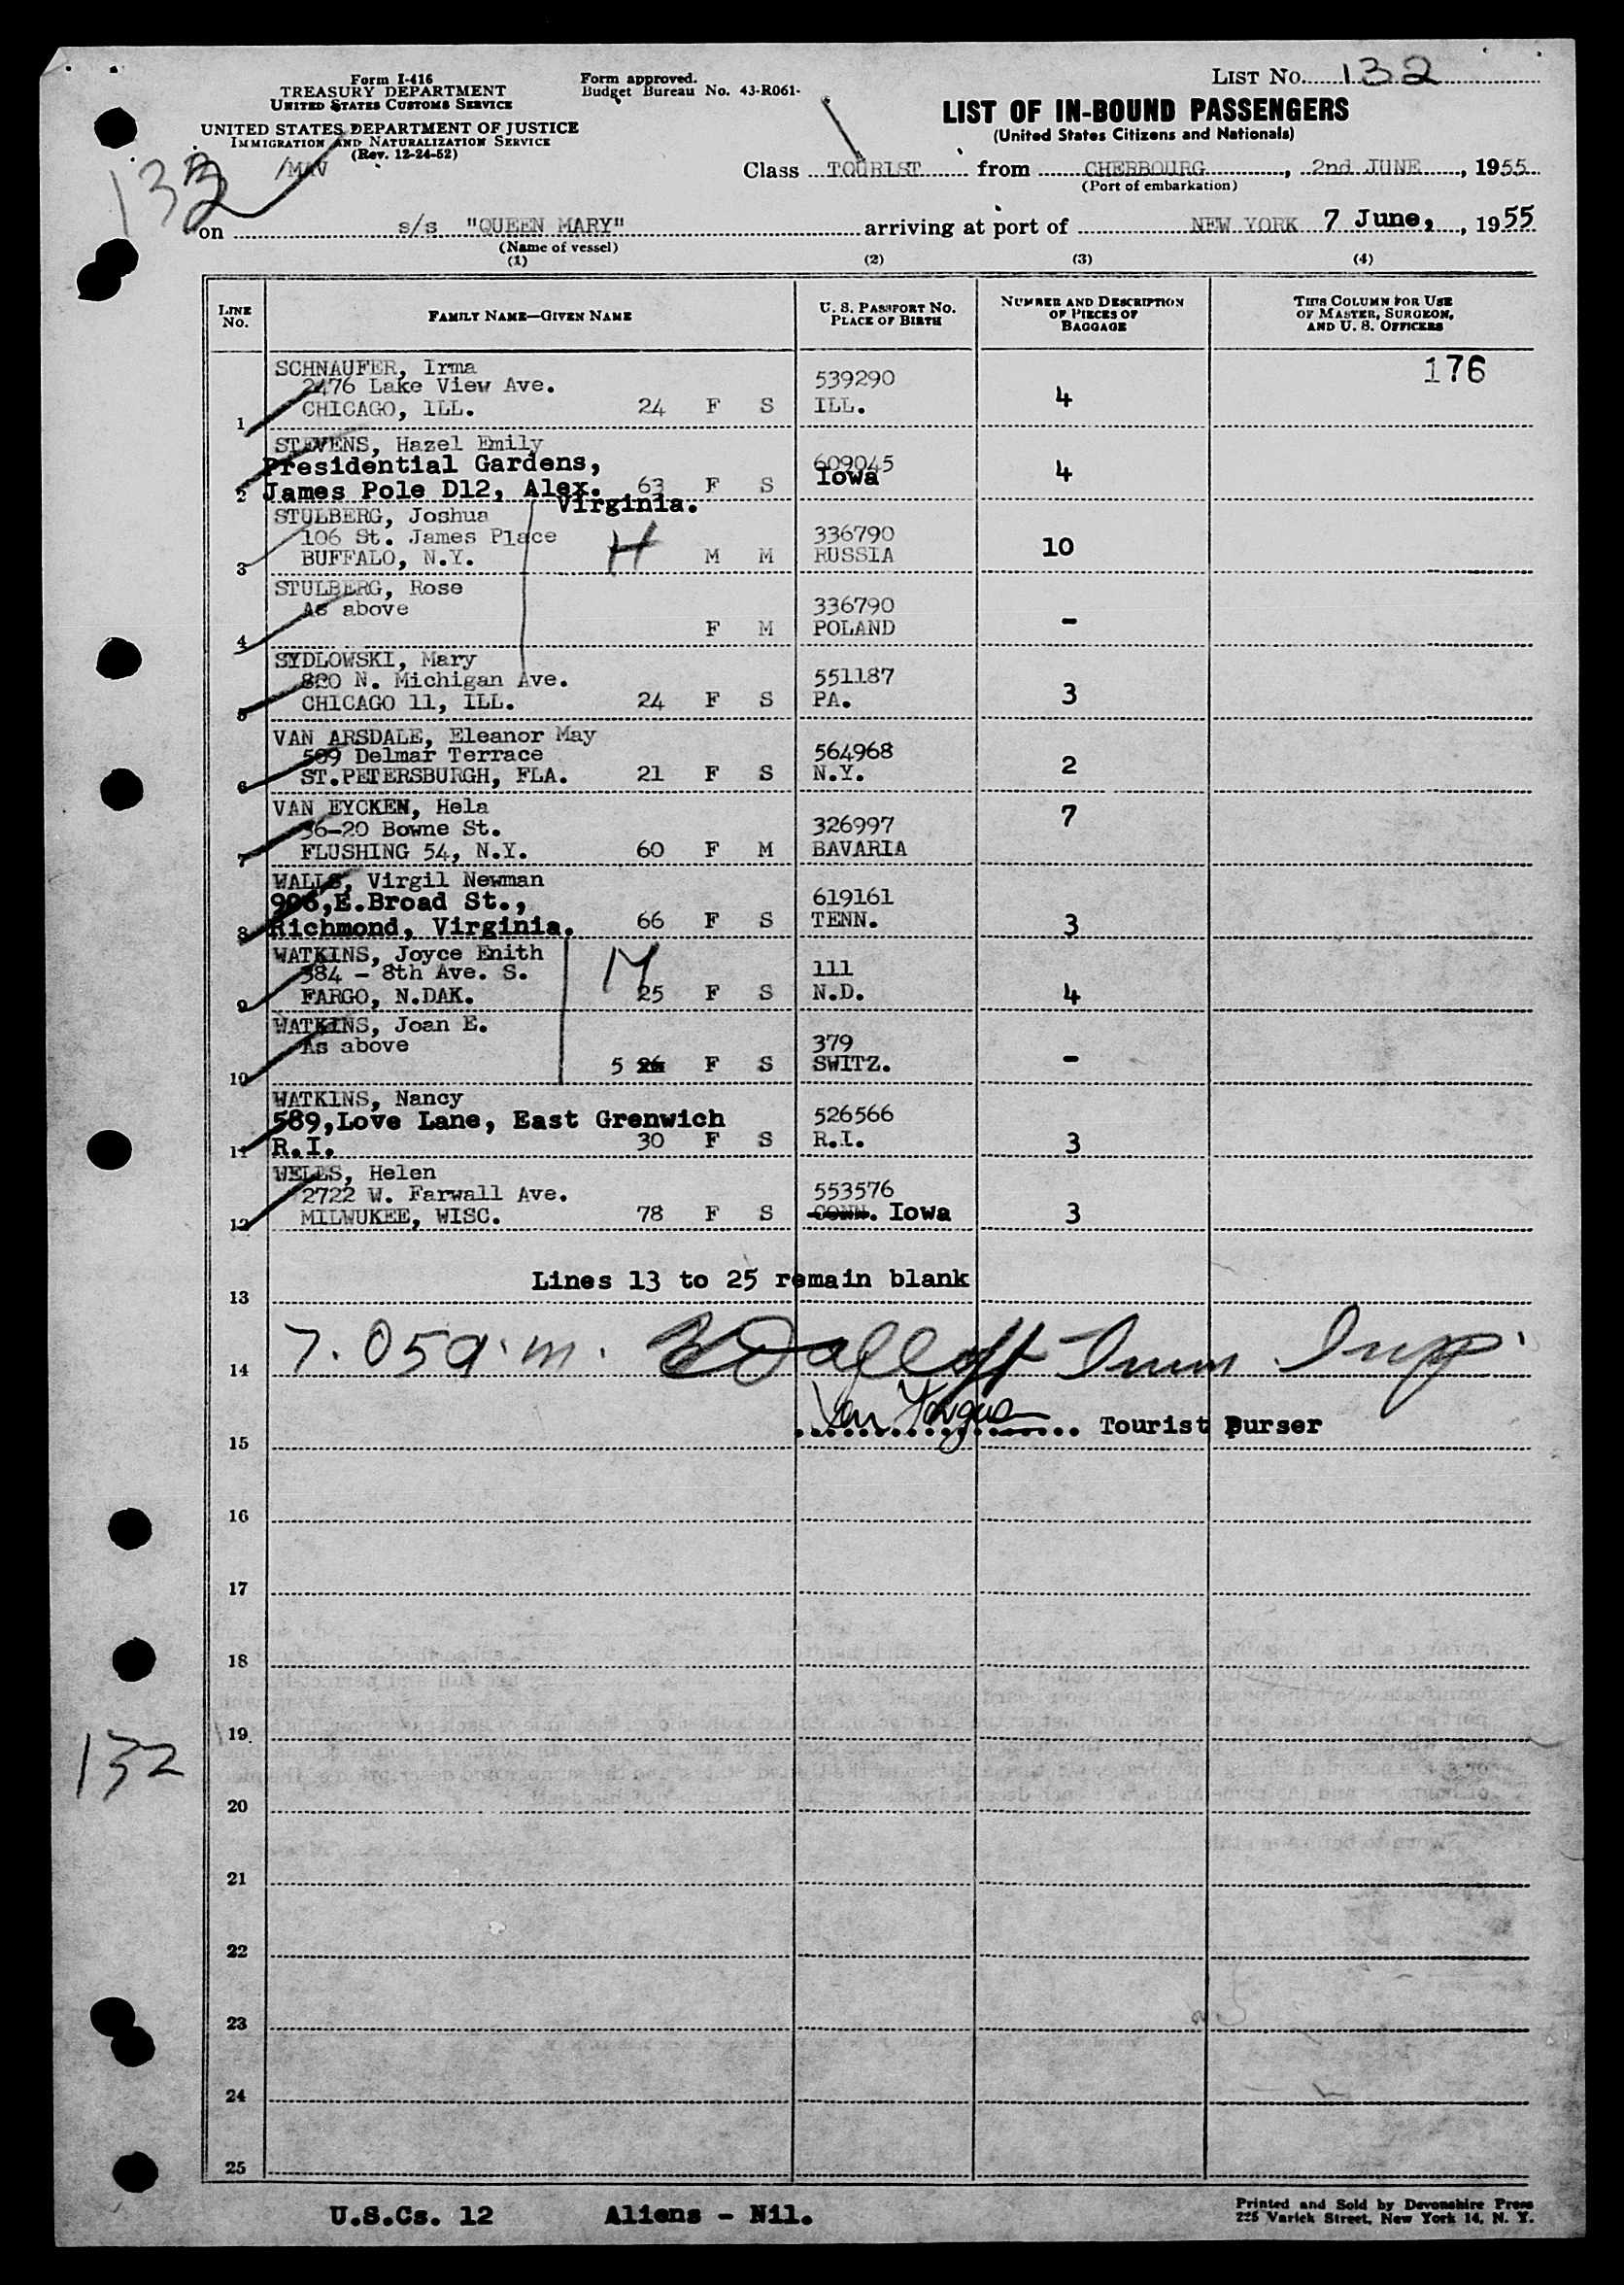 Form I-416
TREASURY DEPARTMENT
UNITED STATES CUSTOMS SERVICE
UNITED STATES DEPARTMENT OF JUSTICE
IMMIGRATION AND NATURALIZATION SERVICE
(Rev. 12-24-52)
/MAV
132
Form approved.
Budget Bureau No. 43-R061-
LIST NO. 132
LIST OF IN-BOUND PASSENGERS
(United States Citizens and Nationals)
Class TOURIST from CHERBOURG, 2nd JUNE, 1955
(Port of embarkation)
on s/s "QUEEN MARY" arriving at port of NEW YORK 7 June, 1955
(Name of vessel)
(1) (2) (3) (4)
LINE No. FAMILY NAME—GIVEN NAME U. S. PASSPORT NO. PLACE OF BIRTH NUMBER AND DESCRIPTION OF PIECES OF BAGGAGE THIS COLUMN FOR USE OF MASTER, SURGEON, AND U. S. OFFICERS
176
SCHNAUFER, Irma
2476 Lake View Ave. 539290
1 CHICAGO, ILL. 24 F S ILL. 4
STEVENS, Hazel Emily
Presidential Gardens, 609045
2 James Pole D12, Alex. 63 F S Iowa 4
Virginia.
STULBERG, Joshua
106 St. James Place H 336790
3 BUFFALO, N.Y. M M RUSSIA 10
STULBERG, Rose
As above 336790
4 F M POLAND -
SYDLOWSKI, Mary
820 N. Michigan Ave. 551187
5 CHICAGO 11, ILL. 24 F S PA. 3
VAN ARSDALE, Eleanor May
509 Delmar Terrace 564968
6 ST.PETERSBURGH, FLA. 21 F S N.Y. 2
VAN EYCKEN, Hela 7
36-20 Bowne St. 326997
7 FLUSHING 54, N.Y. 60 F M BAVARIA
WALLS, Virgil Newman
906,E.Broad St., 619161
8 Richmond, Virginia. 66 F S TENN. 3
WATKINS, Joyce Enith
384 - 8th Ave. S. 111
9 FARGO, N.DAK. 25 F S N.D. 4
WATKINS, Joan E.
As above 379
10 5 26 F S SWITZ. -
WATKINS, Nancy
589,Love Lane, East Grenwich 526566
11 R.I. 30 F S R.I. 3
WELLS, Helen
2722 W. Farwall Ave. 553576
12 MILWUKEE, WISC. 78 F S CONN. Iowa 3
Lines 13 to 25 remain blank
13
14 7.05 a.m. Imm Insp.
Tourist Purser
15
16
17
18
19
132
20
21
22
23
24
25
U.S.Cs. 12 Aliens - Nil.
Printed and Sold by Devonshire Press
225 Varick Street, New York 14, N. Y.